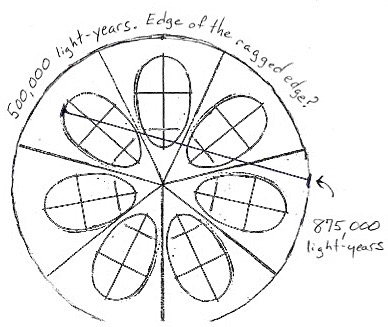 500,000 light-years. Edge of the ragged edge?
875,000
light-years